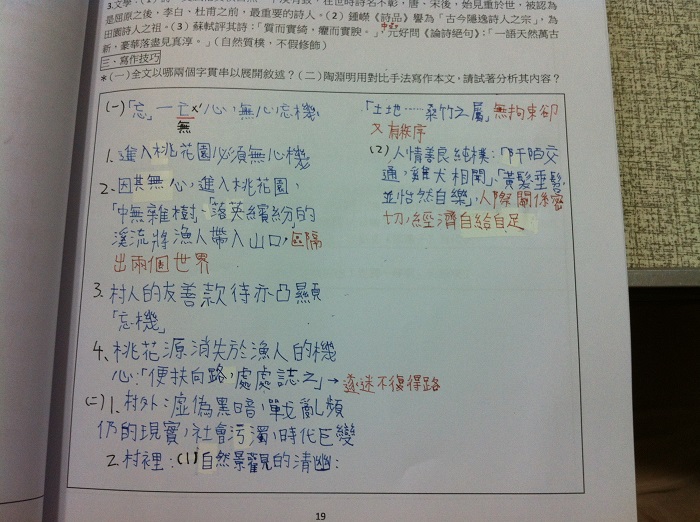 3.文學
是屈原之後,李白、杜甫之前,最重要的詩人。(2)鍾嶸《詩品》譽為「古今隱逸詩人之宗」,為
田園詩人之祖。(3)蘇軾評其詩:「質而實綺,癯而實腴。」,元好問《論詩絕句》:「一語天然萬古
新,豪華落盡見真淳。」(自然質樸,不假修飾)
三、寫作技巧
*(一)全文以哪兩個字貫串以展開敘述?(二)陶淵明用對比手法寫作本文,請試著分析其內容?
(一)「忘」一亡x'心,無心忘機、
無
1.進入桃花園必須無心機
2.因其無心,進入桃花園,
「中無雜樹」、「落英繽紛」的
溪流將漁人帶入山口,區隔
出兩個世界
3.村人的友善款待亦凸顯
「忘機」
4.桃花源消失於漁人的機
心:「便扶向路,處處誌之」→遂迷不復得路
(二)1.村外:虛偽黑暗,戰亂頻
仍的現實,社會污濁,時代巨變
2.村裡:(1)自然景觀的清幽:
「土地……桑竹之屬」無拘束卻
又有秩序
(2)人情善良純樸:「阡陌交
通,雞犬相聞」、「黃髮垂髫
並怡然自樂」,人際關係密
切,經濟自給自足
19